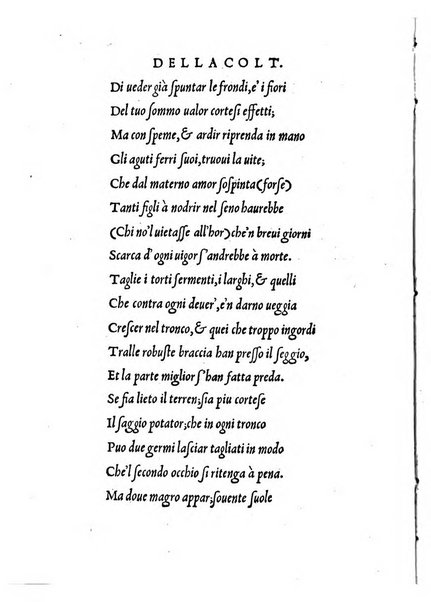 DELLA COLT.
Di ueder già ſpuntar le frondi,e' i fiori
Del tuo ſommo ualor corteſi effetti;
Ma con ſpeme,& ardir riprenda in mano
Gli aguti ferri ſuoi,truoui la uite;
Che dal materno amor ſoſpinta(forſe)
Tanti figli à nodrir nel ſeno haurebbe
(Chi no'l uietaſſe all'hor)che'n breui giorni
Scarca d'ogni uigor s'andrebbe à morte.
Taglie i torti ſermenti,i larghi,& quelli
Che contra ogni deuer',e'n darno ueggia
Creſcer nel tronco,& quei che troppo ingordi
Tralle robuſte braccia han preſſo il ſeggio,
Et la parte miglior s'han fatta preda.
Se fia lieto il terren;ſia piu corteſe
Il ſaggio potator;che in ogni tronco
Puo due germi laſciar tagliati in modo
Che'l ſecondo occhio ſi ritenga à pena.
Ma doue magro appar;ſouente ſuole